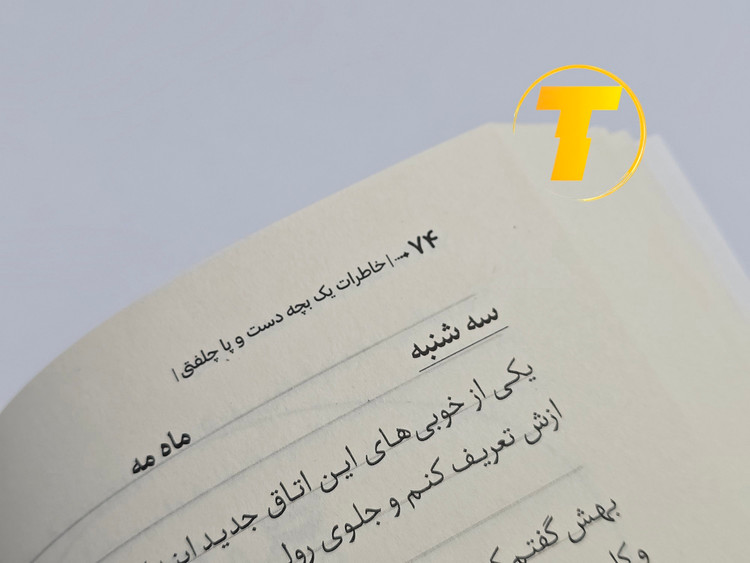 T
۷۴ | خاطرات یک بچه دست و پا چلفتی |
سه شنبه
ماه مه
یکی از خوبی‌های این اتاق جدید
ازش تعریف کنم و جلوی
بهش گفتم